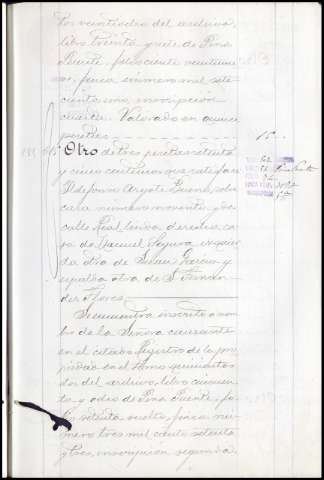 tos veintidos del archivo,
libro treinta y seis de Pino
Puente, folio ciento veintinue
ve, finca número mil sete
cientos uno, inscripción
cuarta. Valorado en quince
pesetas. 15
Otro de tres pesetas setenta
y cinco centimos que satisface
Ildefonso Argote sobre
casa número noventa y dos
calle Real linda derecha ca
sa de Manuel Segura izquier
da otra de Juan Garcia y
espalda otra de D. Fernan
der Flores.
Se encuentra inscrito a nom
bre de la Señora causante
en el citado Registro de la pro
piedad en el tomo quinientos
dos del archivo, libro cincuen
ta y ocho de Pino Puente, fo
lio setenta vuelto, finca nú
mero tres mil ciento setenta
y tres, inscripción segunda.